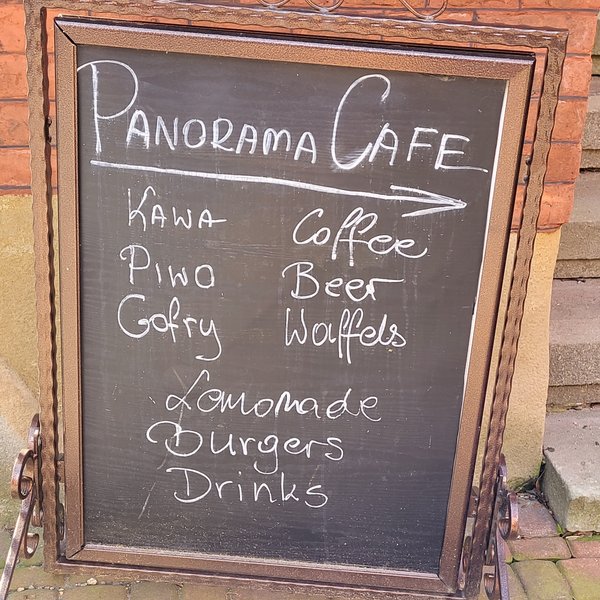 PANORAMA CAFE
KAWA Coffee
PIWO Beer
Gofry Waffels
Lomonade
Burgers
Drinks